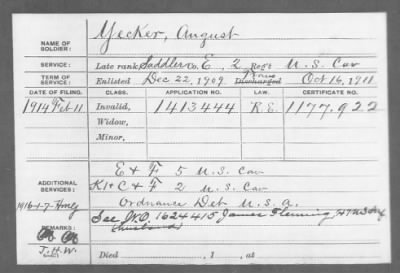 NAME OF SOLDIER: Yecker, August
SERVICE: Late rank, Saddler Co. E, 2 Reg't U.S. Cav
TERM OF SERVICE: Enlisted Dec 22, 1909 Discharged Oct 16, 1911
DATE OF FILING. CLASS. APPLICATION NO. LAW. CERTIFICATE NO.
1914 Feb 11 Invalid, 1413444 1177.922
Widow,
Minor,
ADDITIONAL SERVICES:
E & F 5 U.S. Cav
K & C & F 2 U.S. Cav
Ordnance Det U.S.A.
1916-1-7-
See W.O. 1624415 James Fleming
(husband)
REMARKS:
J.H.W.
Died , 1 , at